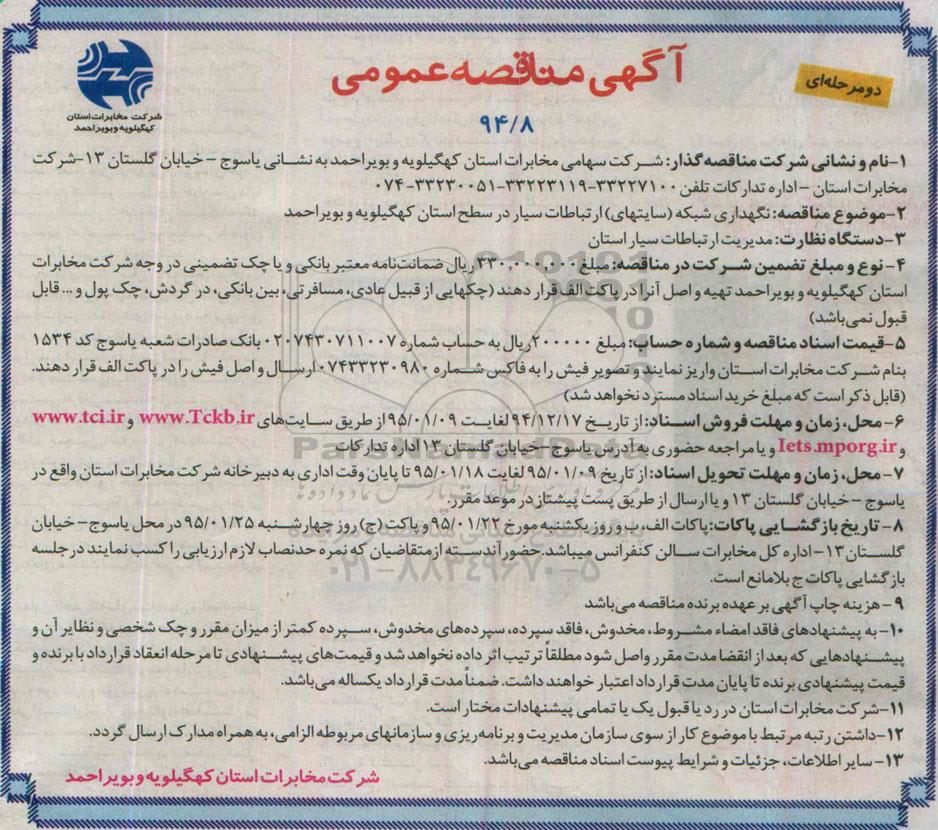 آگهی مناقصه عمومی
دو مرحله‌ای
۹۴/۸
شرکت مخابرات استان
کهگیلویه و بویراحمد
۱-نام و نشانی شرکت مناقصه گذار: شرکت سهامی مخابرات استان کهگیلویه و بویراحمد به نشانی یاسوج - خیابان گلستان ۱۳-شرکت
مخابرات استان - اداره تدارکات تلفن ۳۳۲۲۷۱۰۰-۳۳۲۲۳۱۱۹-۳۳۲۳۰۰۵۱-۰۷۴
۲-موضوع مناقصه: نگهداری شبکه (سایتهای) ارتباطات سیار در سطح استان کهگیلویه و بویراحمد
۳-دستگاه نظارت: مدیریت ارتباطات سیار استان
۴- نوع و مبلغ تضمین شرکت در مناقصه: مبلغ ۳۳۰,۰۰۰,۰۰۰ ریال ضمانت‌نامه معتبر بانکی و یا چک تضمینی در وجه شرکت مخابرات
استان کهگیلویه و بویراحمد تهیه و اصل آنرا در پاکت الف قرار دهند (چکهایی از قبیل عادی، مسافرتی، بین بانکی، در گردش، چک پول و ... قابل
قبول نمی‌باشد)
۵-قیمت اسناد مناقصه و شماره حساب: مبلغ ۲۰۰۰۰۰ ریال به حساب شماره ۰۲۰۷۴۳۰۷۱۱۰۰۷ بانک صادرات شعبه یاسوج کد ۱۵۳۴
بنام شرکت مخابرات استان واریز نمایند و تصویر فیش را به فاکس شماره ۰۷۴۳۳۲۳۰۹۸۰ ارسال و اصل فیش را در پاکت الف قرار دهند.
(قابل ذکر است که مبلغ خرید اسناد مسترد نخواهد شد)
۶- محل، زمان و مهلت فروش اسناد: از تاریخ ۹۴/۱۲/۱۷ لغایت ۹۵/۰۱/۰۹ از طریق سایت‌های www.Tckb.ir و www.tci.ir
و Iets.mporg.ir و یا مراجعه حضوری به آدرس یاسوج - خیابان گلستان ۱۳ اداره تدارکات
۷- محل، زمان و مهلت تحویل اسناد: از تاریخ ۹۵/۰۱/۰۹ لغایت ۹۵/۰۱/۱۸ تا پایان وقت اداری به دبیرخانه شرکت مخابرات استان واقع در
یاسوج - خیابان گلستان ۱۳ و یا ارسال از طریق پست پیشتاز در موعد مقرر.
۸- تاریخ بازگشایی پاکات: پاکات الف، ب و روز یکشنبه مورخ ۹۵/۰۱/۲۲ و پاکت (ج) روز چهارشنبه ۹۵/۰۱/۲۵ در محل یاسوج - خیابان
گلستان ۱۳ - اداره کل مخابرات سالن کنفرانس میباشد. حضور آندسته از متقاضیان که نمره حدنصاب لازم ارزیابی را کسب نمایند در جلسه
بازگشایی پاکات ج بلامانع است.
۹- هزینه چاپ آگهی بر عهده برنده مناقصه می‌باشد
۱۰- به پیشنهادهای فاقد امضاء مشروط، مخدوش، فاقد سپرده، سپرده‌های مخدوش، سپرده کمتر از میزان مقرر و چک شخصی و نظایر آن و
پیشنهادهایی که بعد از انقضا مدت مقرر واصل شود مطلقاً ترتیب اثر داده نخواهد شد و قیمت‌های پیشنهادی تا مرحله انعقاد قرارداد با برنده و
قیمت پیشنهادی برنده تا پایان مدت قرارداد اعتبار خواهند داشت. ضمناً مدت قرارداد یکساله می‌باشد.
۱۱-شرکت مخابرات استان در رد یا قبول یک یا تمامی پیشنهادات مختار است.
۱۲-داشتن رتبه مرتبط با موضوع کار از سوی سازمان مدیریت و برنامه‌ریزی و سازمانهای مربوطه الزامی، به همراه مدارک ارسال گردد.
۱۳- سایر اطلاعات، جزئیات و شرایط پیوست اسناد مناقصه می‌باشد.
شرکت مخابرات استان کهگیلویه و بویراحمد
ParsNamadData
۰۲۱-۸۸۳۴۹۶۷۰-۵